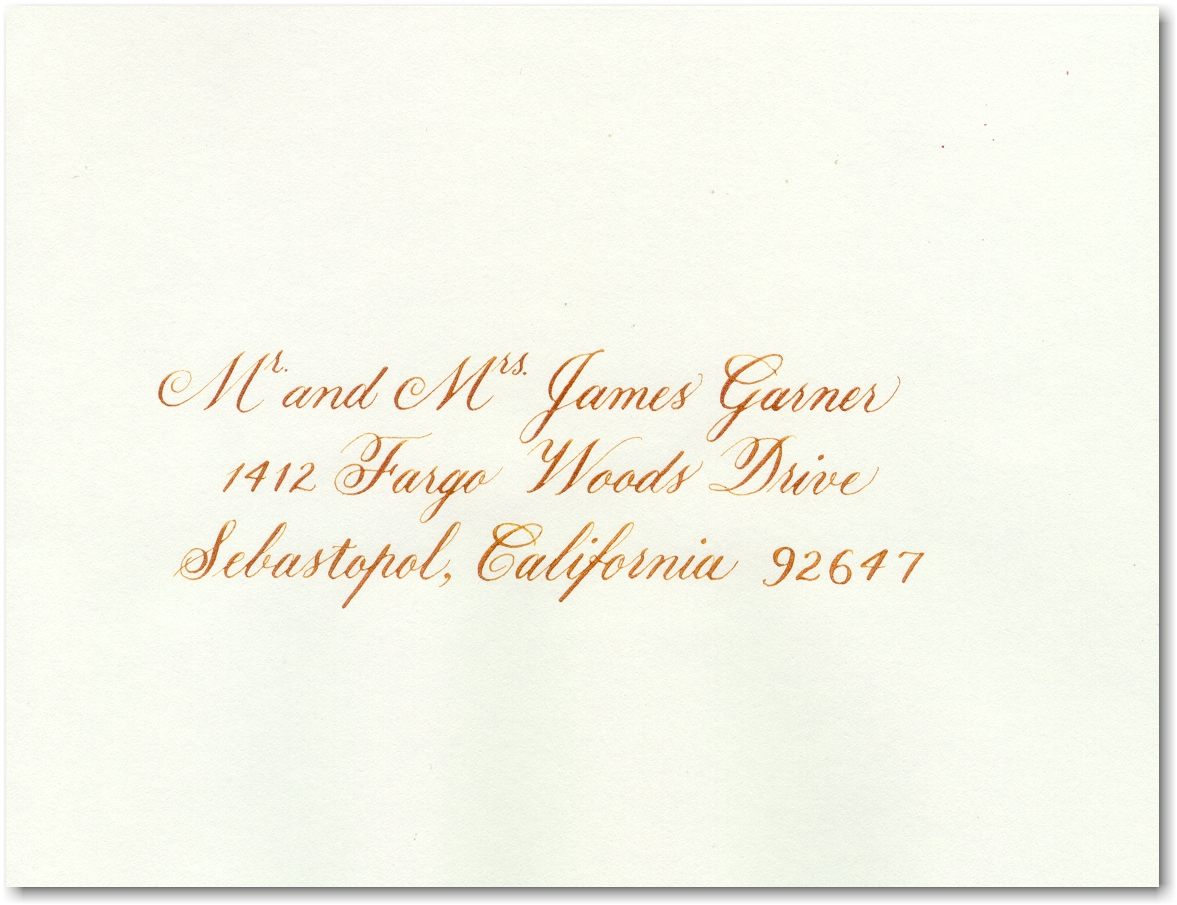 Mr. and Mrs. James Garner
1412 Fargo Woods Drive
Sebastopol, California 92647